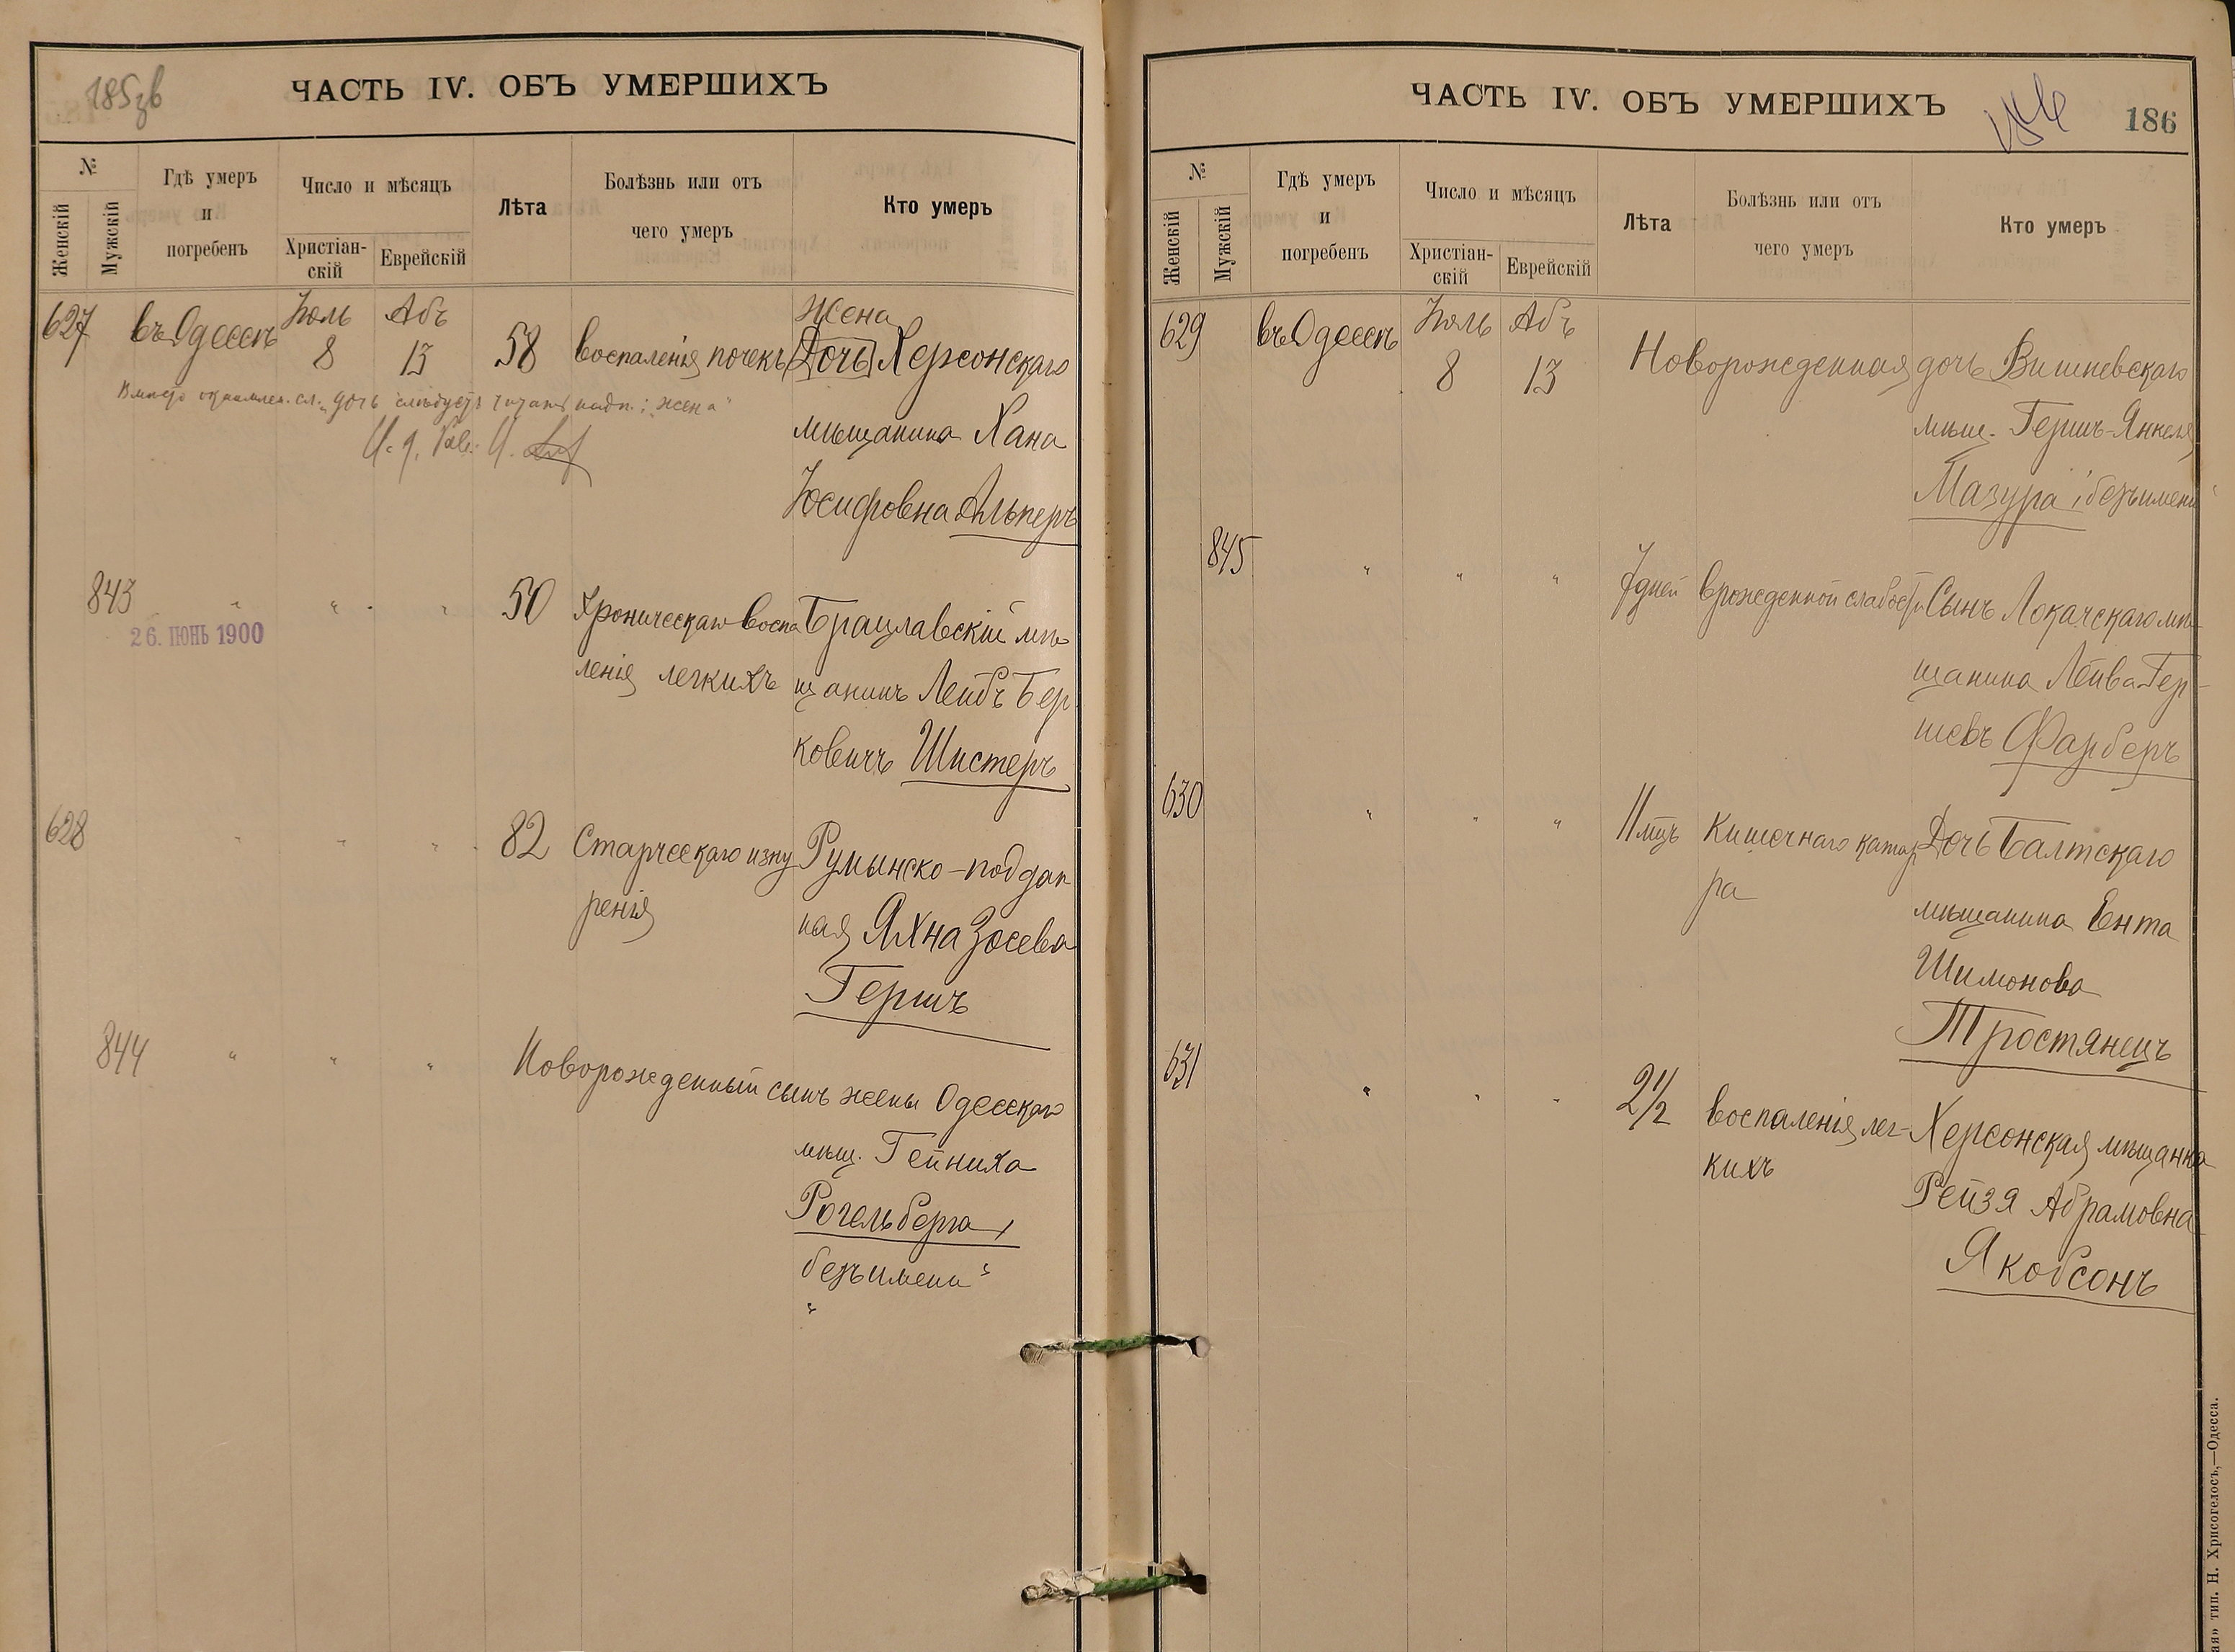 185зв
ЧАСТЬ IV. ОБЪ УМЕРШИХЪ
№
Женскій
Мужскій
Гдѣ умеръ
и
погребенъ
Число и мѣсяцъ
Христіан-
скій
Еврейскій
Лѣта
Болѣзнь или отъ
чего умеръ
Кто умеръ
627 въ Одессѣ Іюль 8 Абъ 13 58 воспаленія почекъ
Жена
Дочь Херсонскаго
мѣщанина Хана
Юсифовна Альперъ
Вмѣсто сл. "дочь" слѣдуетъ читать надп.: "жена"
843 " " " 50 Хроническаго воспа
26. ІЮНЬ 1900
ленія легкихъ
Брацлавскій мѣ
щанинъ Лейбъ Бер
ковичъ Шистеръ
628 " " " 82 Старческаго изну
ренія
Румынско-поддан
ная Яхна Зосева
Гершъ
844 " " " Новорожденный сынъ жены Одесскаго
мѣщ. Гейниха
Рогельберга,
безъ имени"
"
ЧАСТЬ IV. ОБЪ УМЕРШИХЪ
186
№
Женскій
Мужскій
Гдѣ умеръ
и
погребенъ
Число и мѣсяцъ
Христіан-
скій
Еврейскій
Лѣта
Болѣзнь или отъ
чего умеръ
Кто умеръ
629 въ Одессѣ Іюль 8 Абъ 13 Новорожденная дочь Вишневскаго
мѣщ. Гершъ-Янкеля
Мазура "безъ имени"
845 " " " 7 дней врожденной слабости
Сынъ Локачскаго мѣ-
щанина Лейва Гер-
шевъ Фарберъ
630 " " " 11 мцъ Кишечнаго катар
ра
Дочь Балтскаго
мѣщанина Ента
Шимонова
Тростянецъ
631 " " " 2 1/2 воспаленія лег-
кихъ
Херсонская мѣщанка
Рейзя Абрамовна
Якобсонъ
тип. Н. Хрисогелосъ,—Одесса.